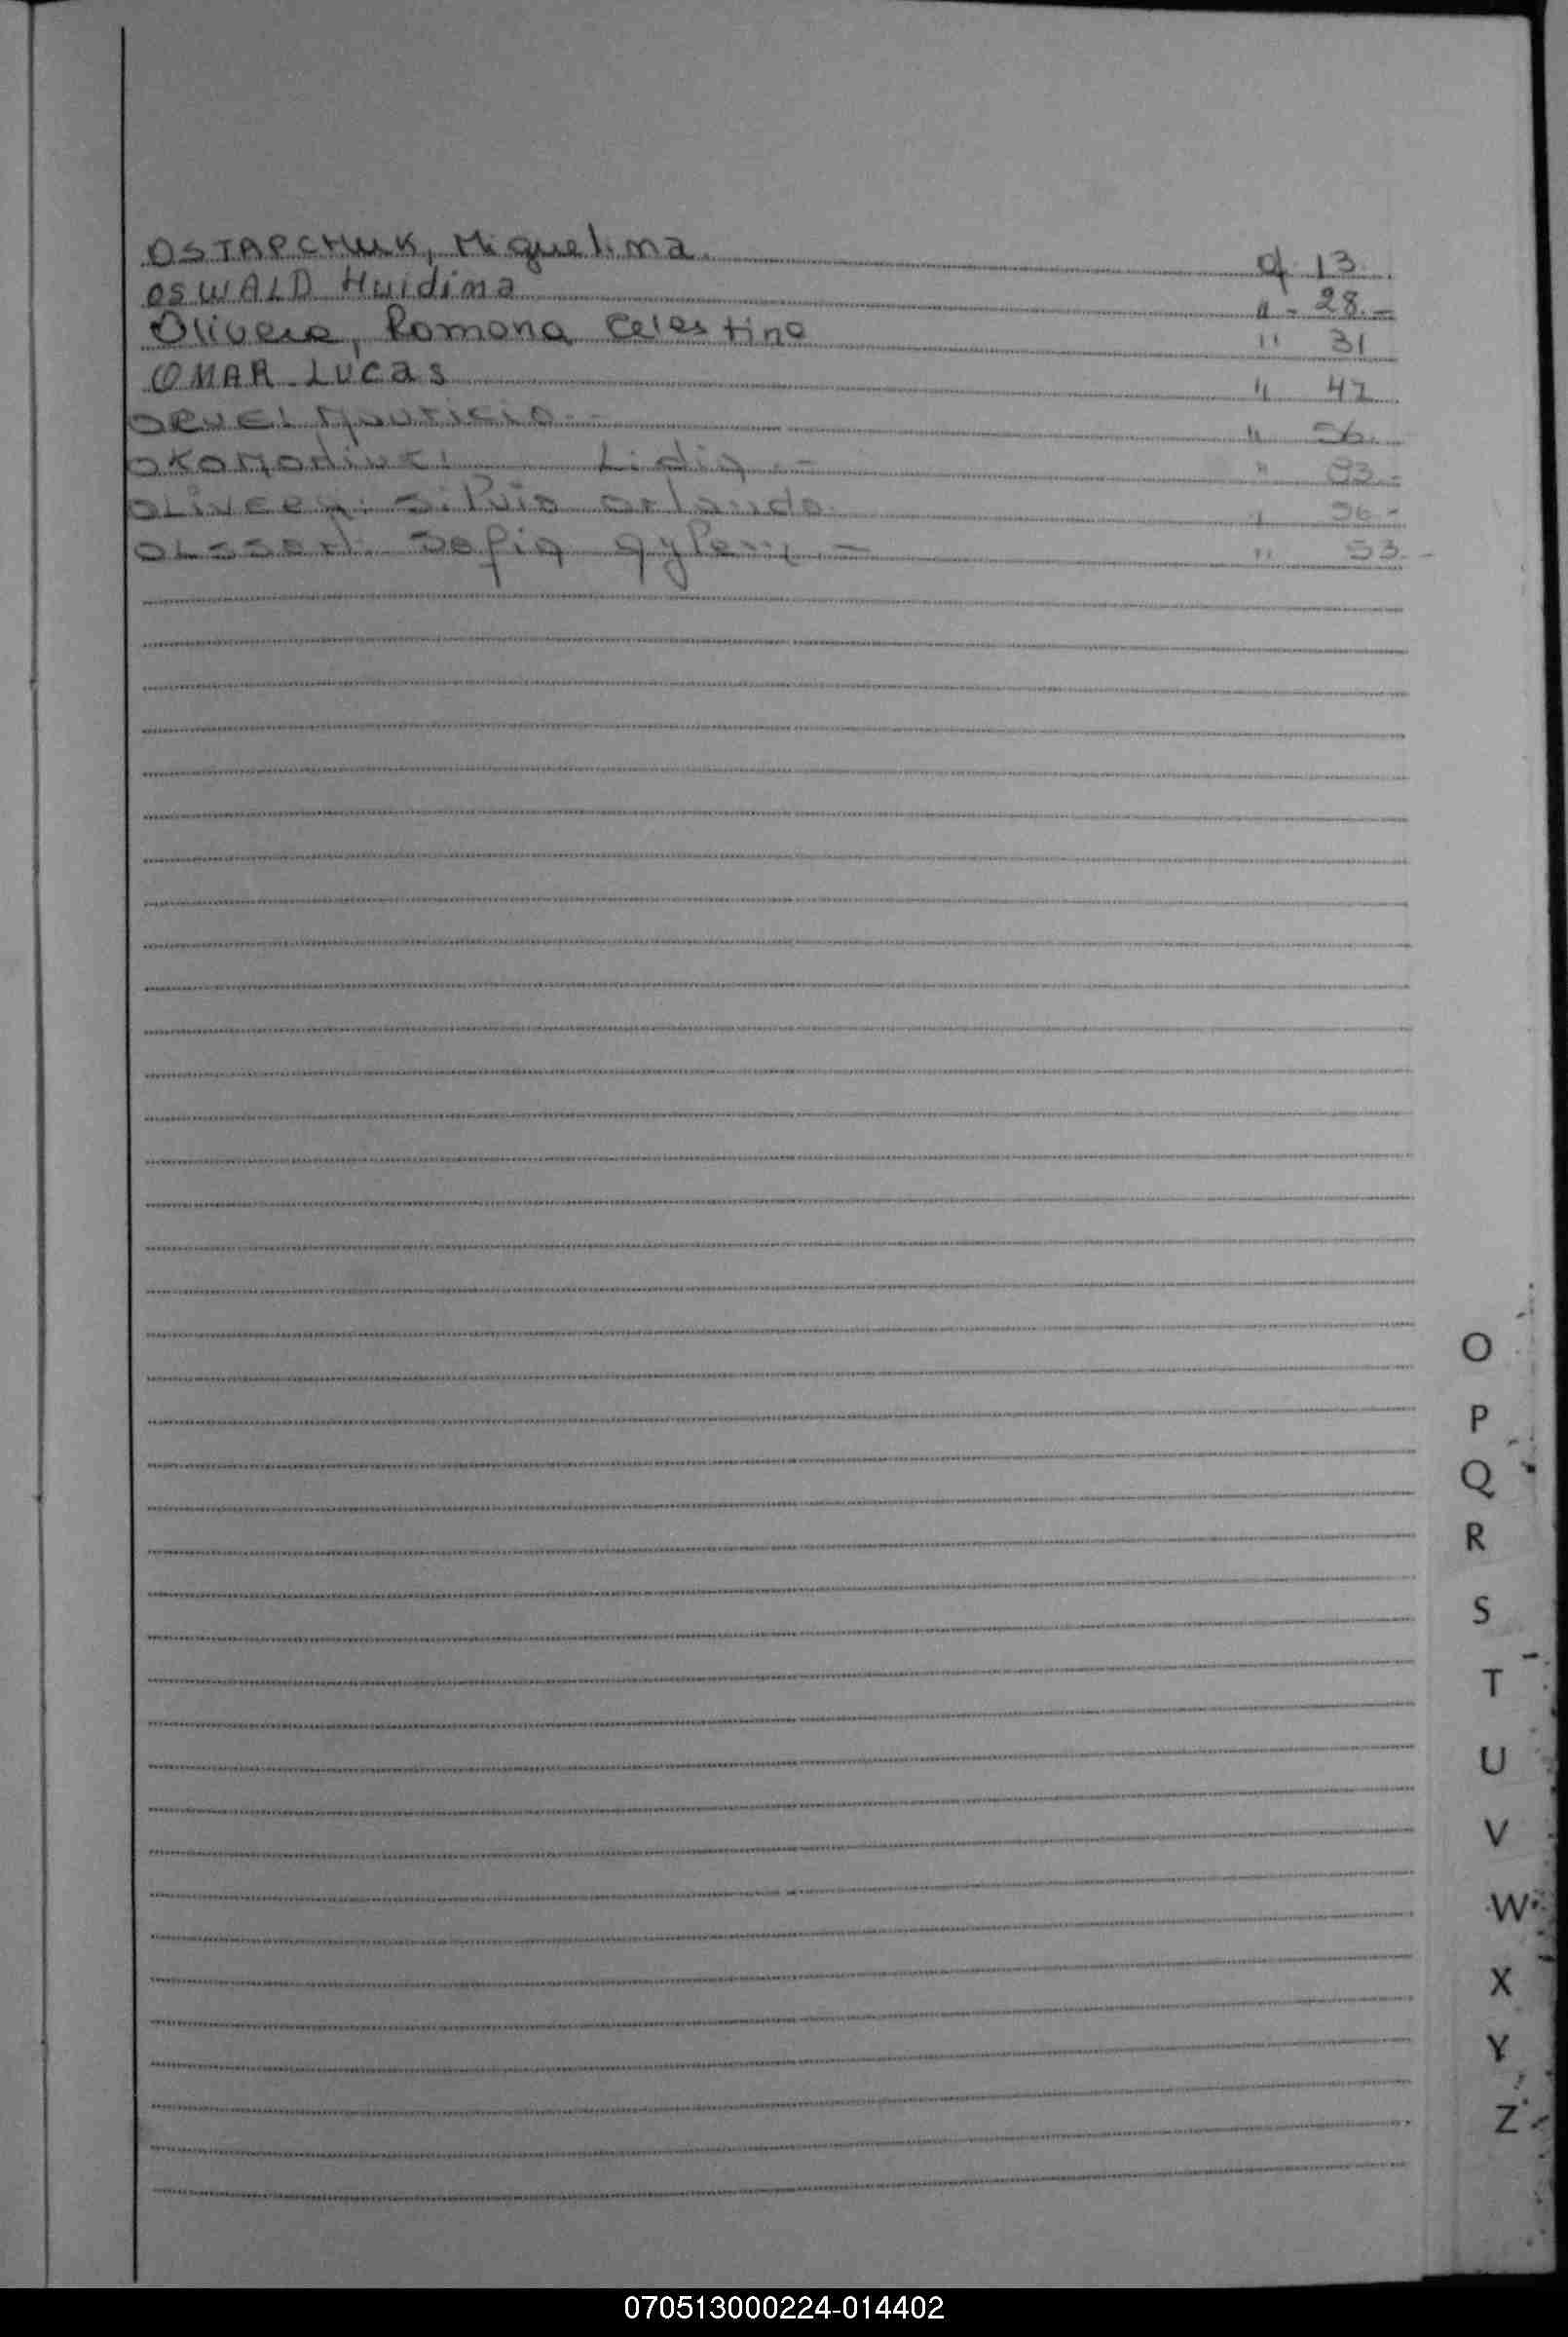 OSTAPCHUK, Miguelina. of 13.
OSWALD Huidima " - 28.-
Olivera, Romona Celestina " 31
OMAR Lucas " 42
ORUEL Mauricio.- " 56.
Lidia.- " 83.-
OLIVERA: Silvio Orlando. " 56-
Sofia " 53.-
O
P
Q
R
S
T
U
V
W
X
Y
Z
070513000224-014402